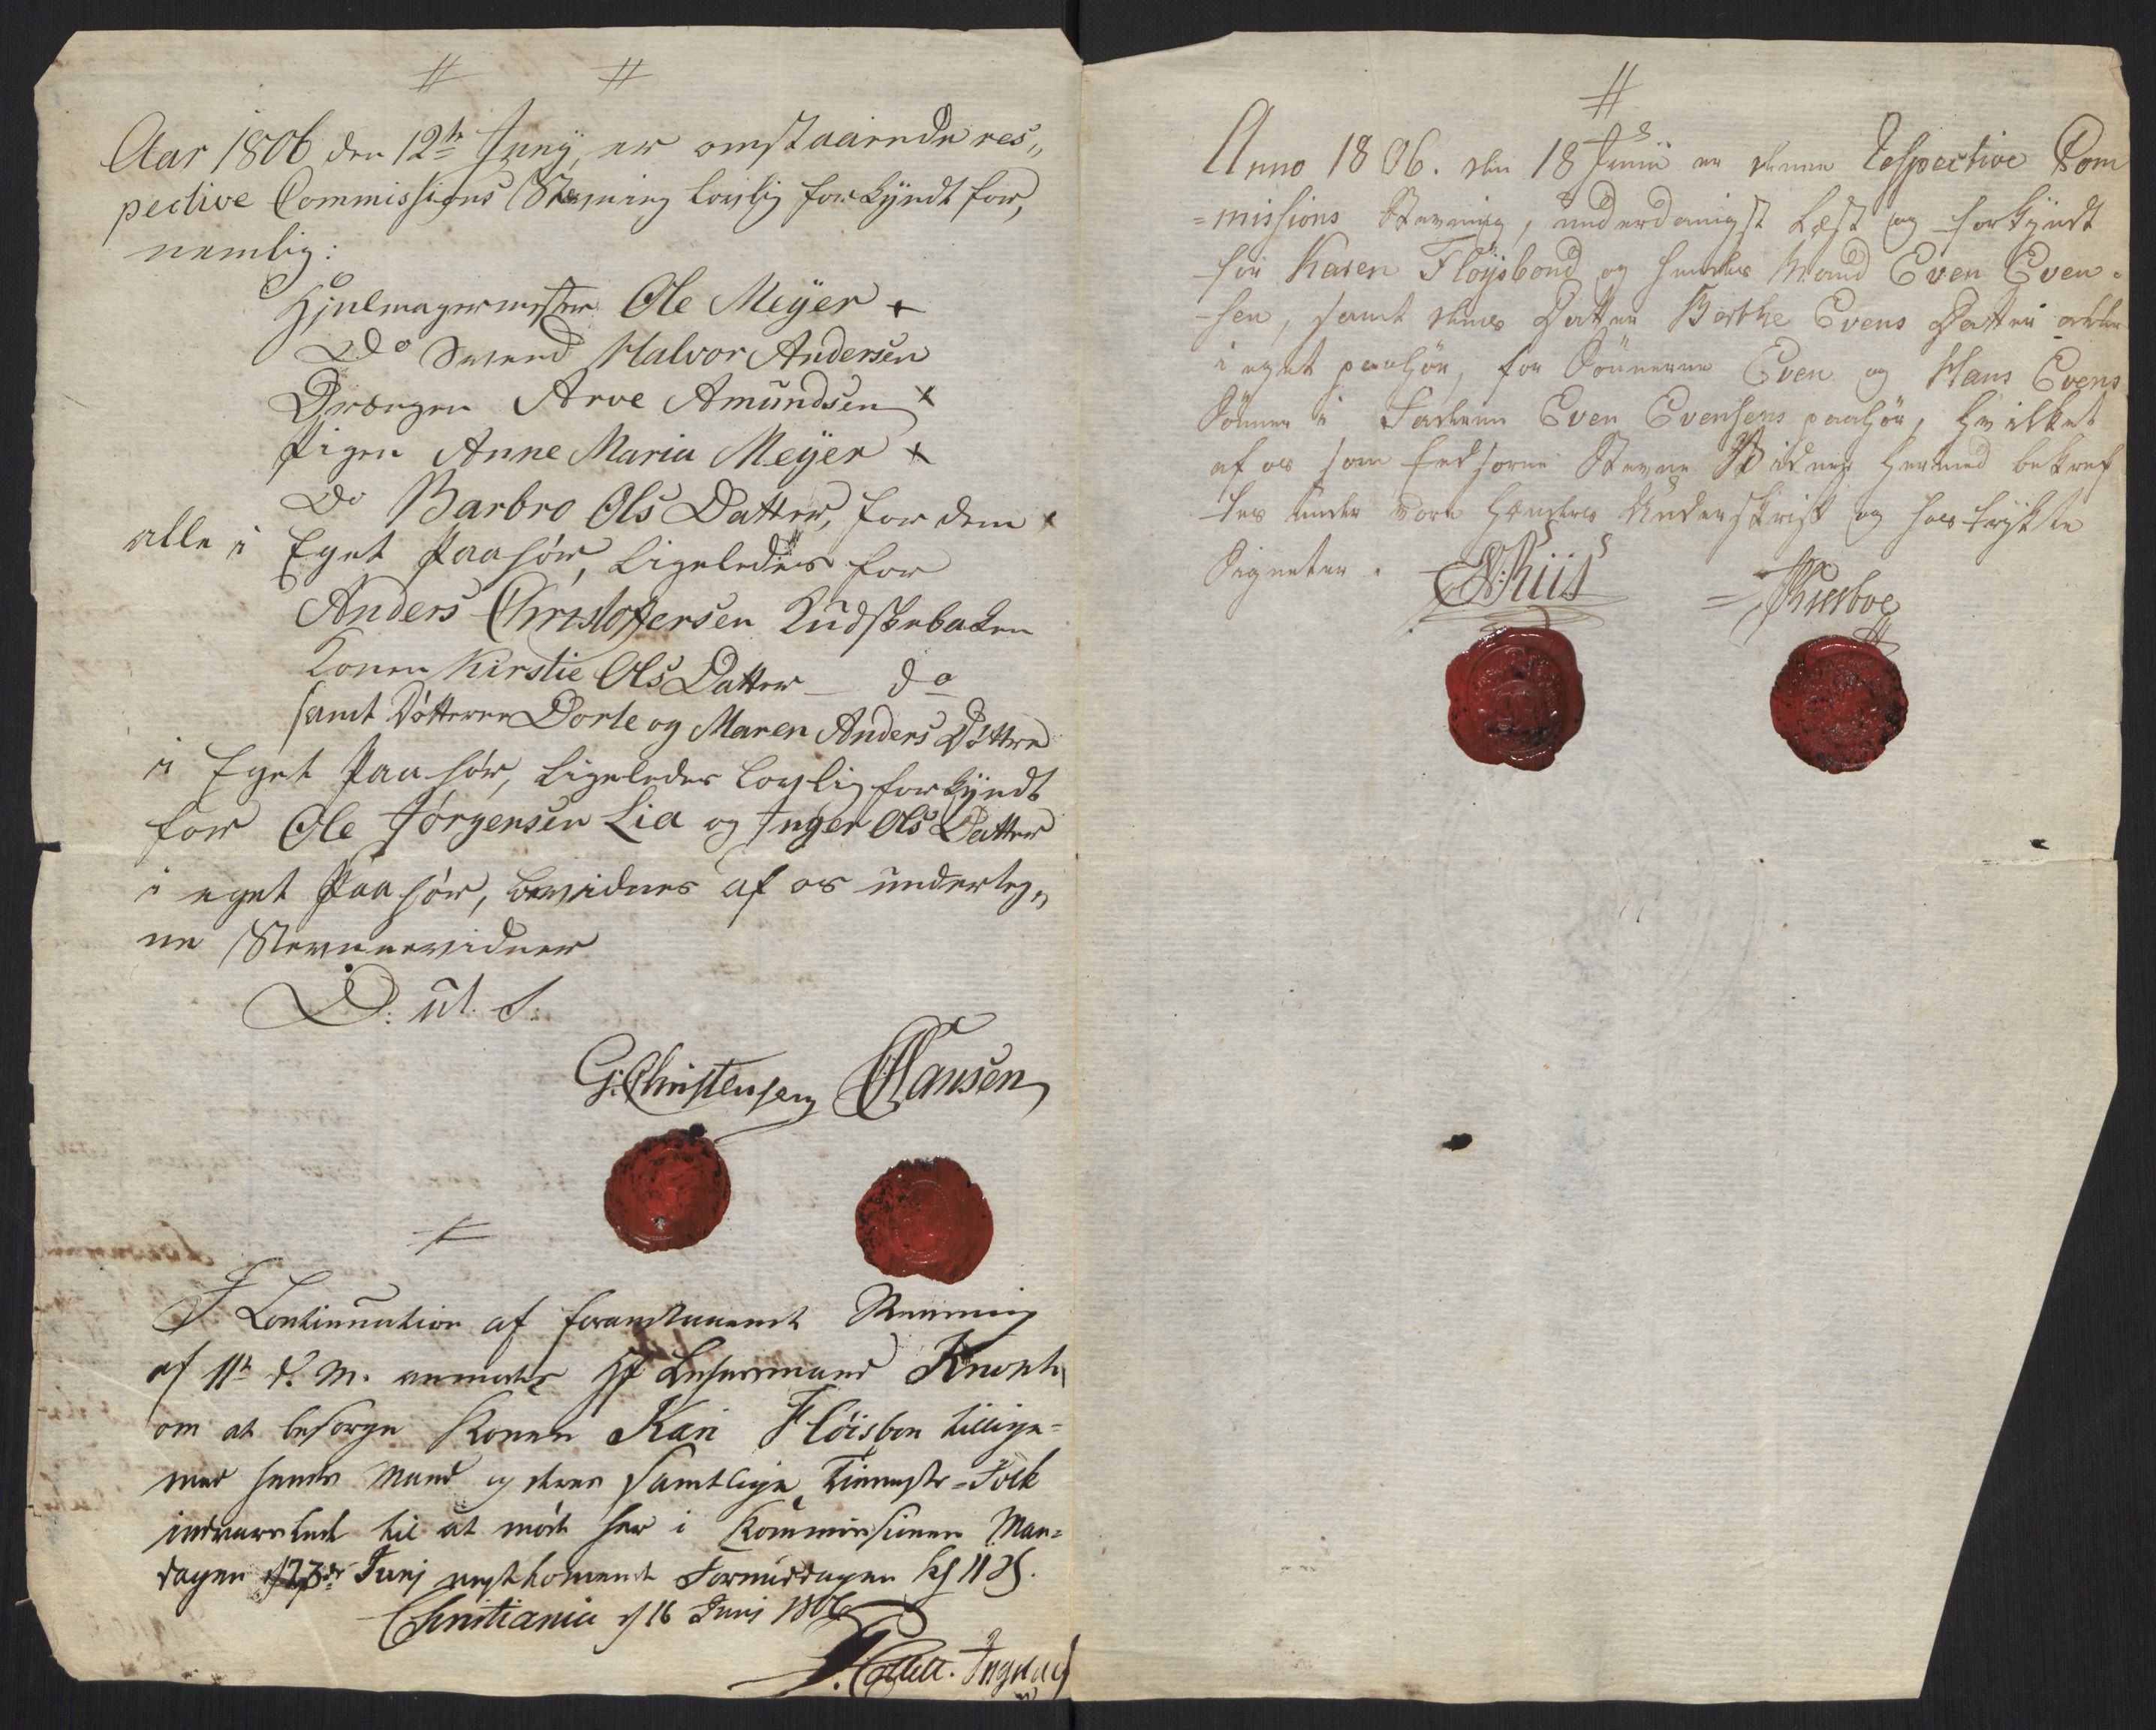 Aar 1806 den 12te Junÿ, er omstaaende res„
pective Commissions Stevning lovlig forkÿndt for,
nemlig:
Hjulmagermester Ole Meÿer +
Do Svend Halvor Andersen
Drængen Arve Amundsen x
Pigen Anne Maria Meÿer x
Do Barbro Ols Datter, for dem x
alle i Eget Paahør, Ligeledes for
Anders Christoffersen Kudskebaken
Konen Kirstie Ols Datter — do
samt Døttrene Dorte og Maren Anders Døttre
i Eget Paahør, Ligeledes lovlig forkÿndt
for Ole Jørgensen Lia og Inger Ols Datter
i eget Paahør, bevidnes af os underteg„
ne Stevnevidner
D: ut. S.
G: Christensen CClausen
I Continuation af foranstaaende Stevning
af 11te d. M. anmodes Hr Lehnsmand
om at besørge Konen Kari Fløisbon tillige=
med hendes Mand og deres samtlige Tienneste=Folk
indvarslede til at møde her i Kommissionen Man=
dagen d 23de Junj næstkomende Formiddagen kl 11
Christiania d 16 Junj 1806
Collett.
Anno 1806. den 18 Junii er denne Respective Com
=missions Stevning, underdanigst Læst og forkÿndt
for Karen Fløÿsbond og hendes Mand Even Even=
sen, samt deres Datter Børthe Evens Datter alle
i eget paahør, for Sønnerne Even og Hans Evens
Sønner i Faderen Even Evensens paahør, hvilket
af os som Eedsorne Stevne Vidner hermed bekræf
tes under vore Hænders Underskrift og hostrykte
Signeter.